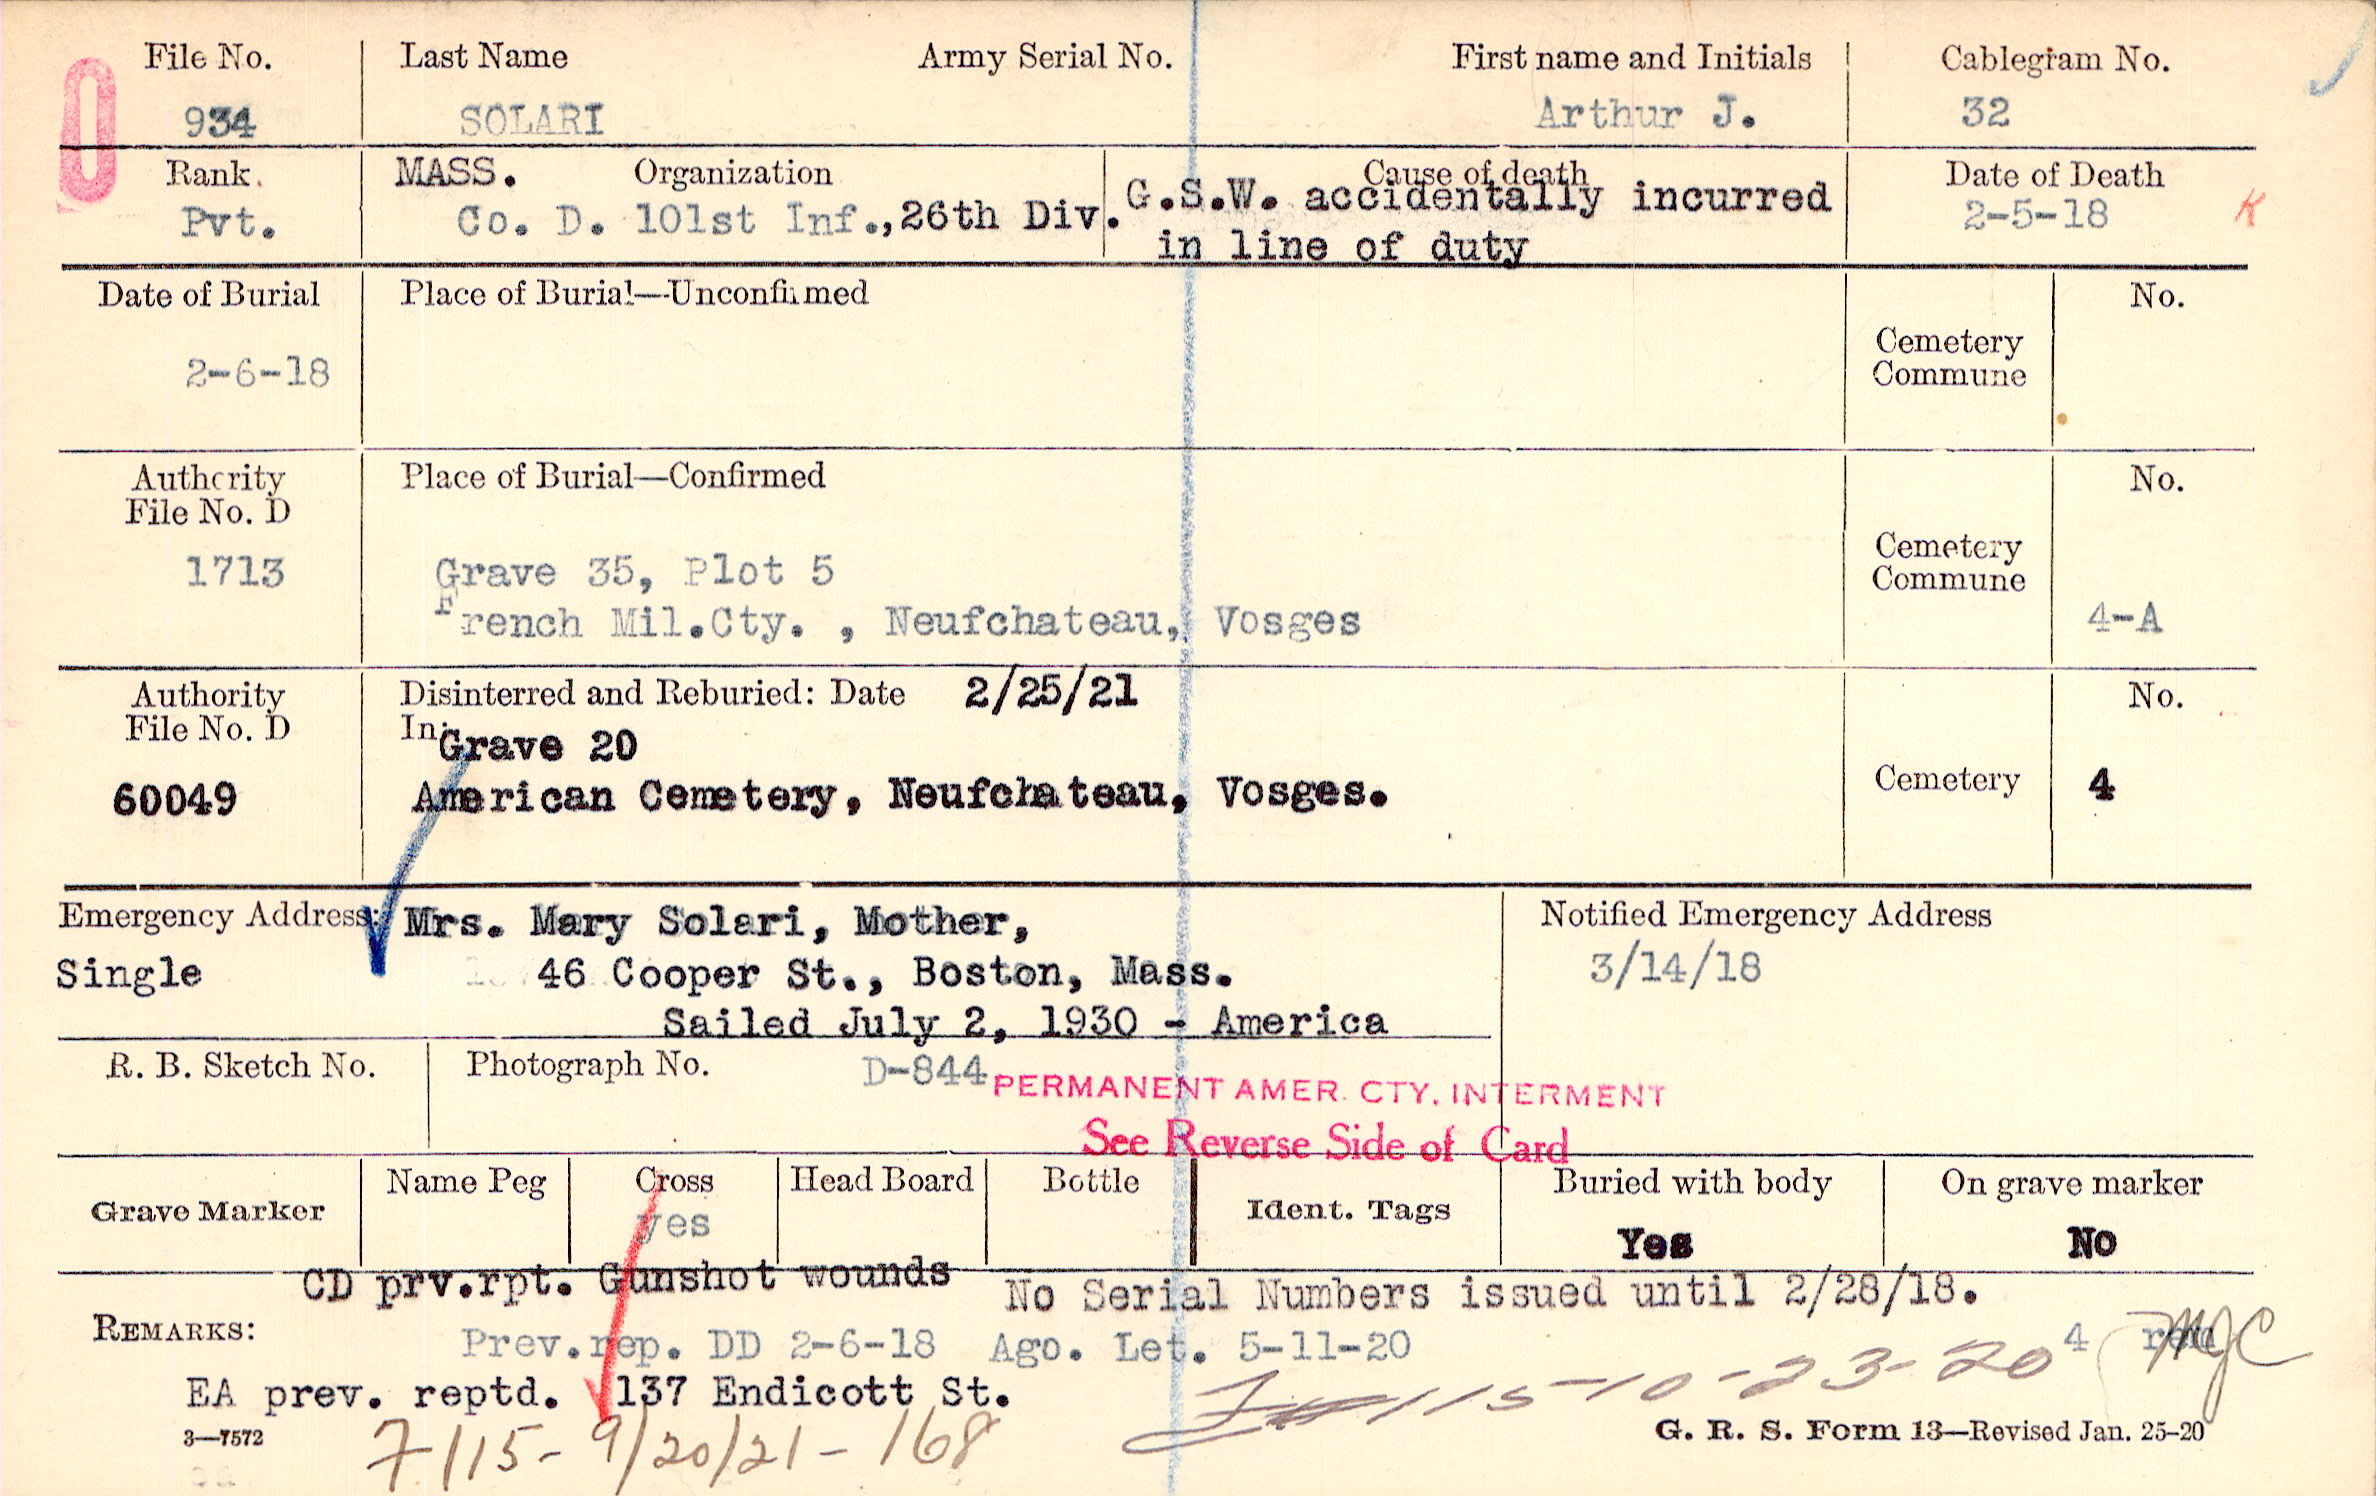 File No. Last Name Army Serial No. First name and Initials Cablegram No.
934 SOLARI Arthur J. 32
Rank. MASS. Organization Cause of death Date of Death
Pvt. Co. D. 101st Inf.,26th Div. G.S.W. accidentally incurred 2-5-18 K
in line of duty
Date of Burial Place of Burial—Unconfirmed No.
Cemetery
Commune
2-6-18
Authority Place of Burial—Confirmed No.
File No. D
Cemetery
Commune
1713 Grave 35, Plot 5
French Mil.Cty. , Neufchateau, Vosges 4-A
Authority Disinterred and Reburied: Date 2/25/21 No.
File No. D In: Grave 20
60049 American Cemetery, Neufchateau, Vosges. Cemetery 4
Emergency Address: Mrs. Mary Solari, Mother, Notified Emergency Address
Single 46 Cooper St., Boston, Mass. 3/14/18
Sailed July 2, 1930 - America
R. B. Sketch No. Photograph No. D-844
PERMANENT AMER. CTY. INTERMENT
See Reverse Side of Card
Grave Marker Name Peg Cross Head Board Bottle Ident. Tags Buried with body On grave marker
yes Yes No
CD prv.rpt. Gunshot wounds No Serial Numbers issued until 2/28/18.
REMARKS: Prev.rep. DD 2-6-18 Ago. Let. 5-11-20 4 MJC
EA prev. reptd. 137 Endicott St. 115-10-23-20
3—7572 7/115- 9/20/21 - 168 G. R. S. Form 13—Revised Jan. 25-20